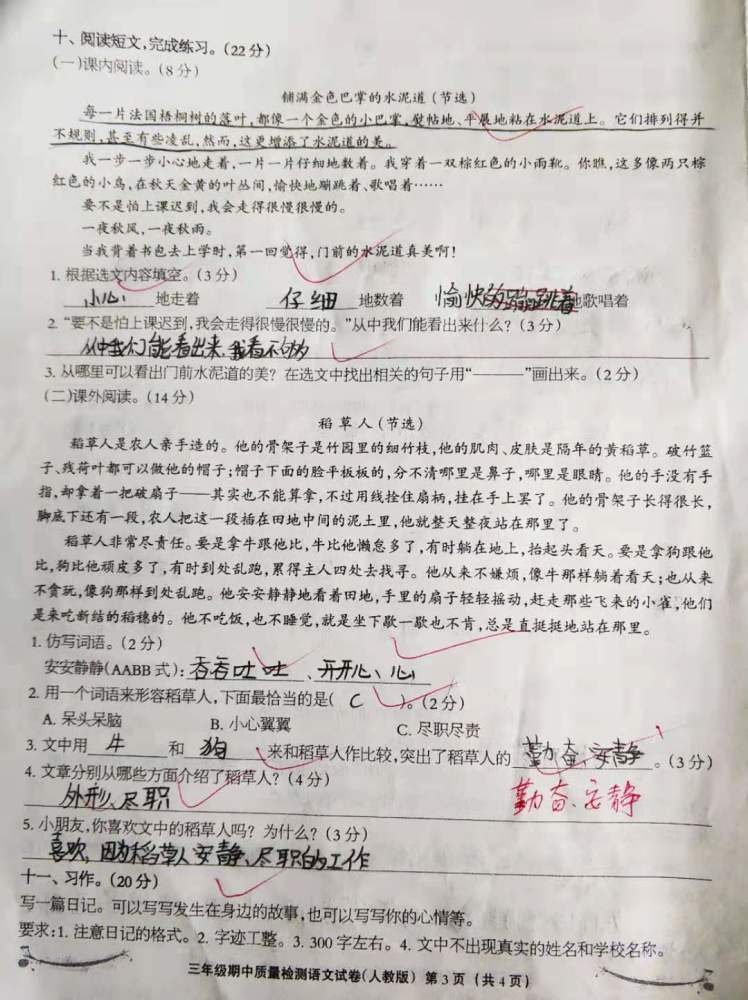 十、阅读短文,完成练习。(22分)
(一)课内阅读。(8分)
铺满金色巴掌的水泥道(节选)
每一片法国梧桐树的落叶,都像一个金色的小巴掌,熨帖地、平展地粘在水泥道上。它们排列得并
不规则,甚至有些凌乱,然而,这更增添了水泥道的美。
我一步一步小心地走着,一片一片仔细地数着。我穿着一双棕红色的小雨靴。你瞧,这多像两只棕
红色的小鸟,在秋天金黄的叶丛间,愉快地蹦跳着、歌唱着……
要不是怕上课迟到,我会走得很慢很慢的。
一夜秋风,一夜秋雨。
当我背着书包去上学时,第一回觉得,门前的水泥道真美啊!
1. 根据选文内容填空。(3分)
小心地走着 仔细地数着 愉快的蹦跳着地歌唱着
2. “要不是怕上课迟到,我会走得很慢很慢的。”从中我们能看出来什么?(3分)
从中我们能看出来,我看不够的
3. 从哪里可以看出门前水泥道的美?在选文中找出相关的句子用“———”画出来。(2分)
(二)课外阅读。(14分)
稻草人(节选)
稻草人是农人亲手造的。他的骨架子是竹园里的细竹枝,他的肌肉、皮肤是隔年的黄稻草。破竹篮
子、残荷叶都可以做他的帽子;帽子下面的脸平板板的,分不清哪里是鼻子,哪里是眼睛。他的手没有手
指,却拿着一把破扇子——其实也不能算拿,不过用线拴住扇柄,挂在手上罢了。他的骨架子长得很长,
脚底下还有一段,农人把这一段插在田地中间的泥土里,他就整天整夜站在那里了。
稻草人非常尽责任。要是拿牛跟他比,牛比他懒怠多了,有时躺在地上,抬起头看天。要是拿狗跟他
比,狗比他顽皮多了,有时到处乱跑,累得主人四处去找寻。他从来不嫌烦,像牛那样躺着看天;也从来
不贪玩,像狗那样到处乱跑。他安安静静地看着田地,手里的扇子轻轻摇动,赶走那些飞来的小雀,他们
是来吃新结的稻穗的。他不吃饭,也不睡觉,就是坐下歇一歇也不肯,总是直挺挺地站在那里。
1. 仿写词语。(2分)
安安静静(AABB式):吞吞吐吐、开开心、心
2. 用一个词语来形容稻草人,下面最恰当的是( C )。(2分)
A. 呆头呆脑 B. 小心翼翼 C. 尽职尽责
3. 文中用牛和狗来和稻草人作比较,突出了稻草人的勤奋、安静。(3分)
4. 文章分别从哪些方面介绍了稻草人?(4分)
外形、尽职
勤奋、安静
5. 小朋友,你喜欢文中的稻草人吗?为什么?(3分)
喜欢,因为稻草人安静、尽职的工作
十一、习作。(20分)
写一篇日记。可以写写发生在身边的故事,也可以写写你的心情等。
要求:1. 注意日记的格式。2. 字迹工整。3. 300字左右。4. 文中不出现真实的姓名和学校名称。
三年级期中质量检测语文试卷(人教版) 第3页(共4页)